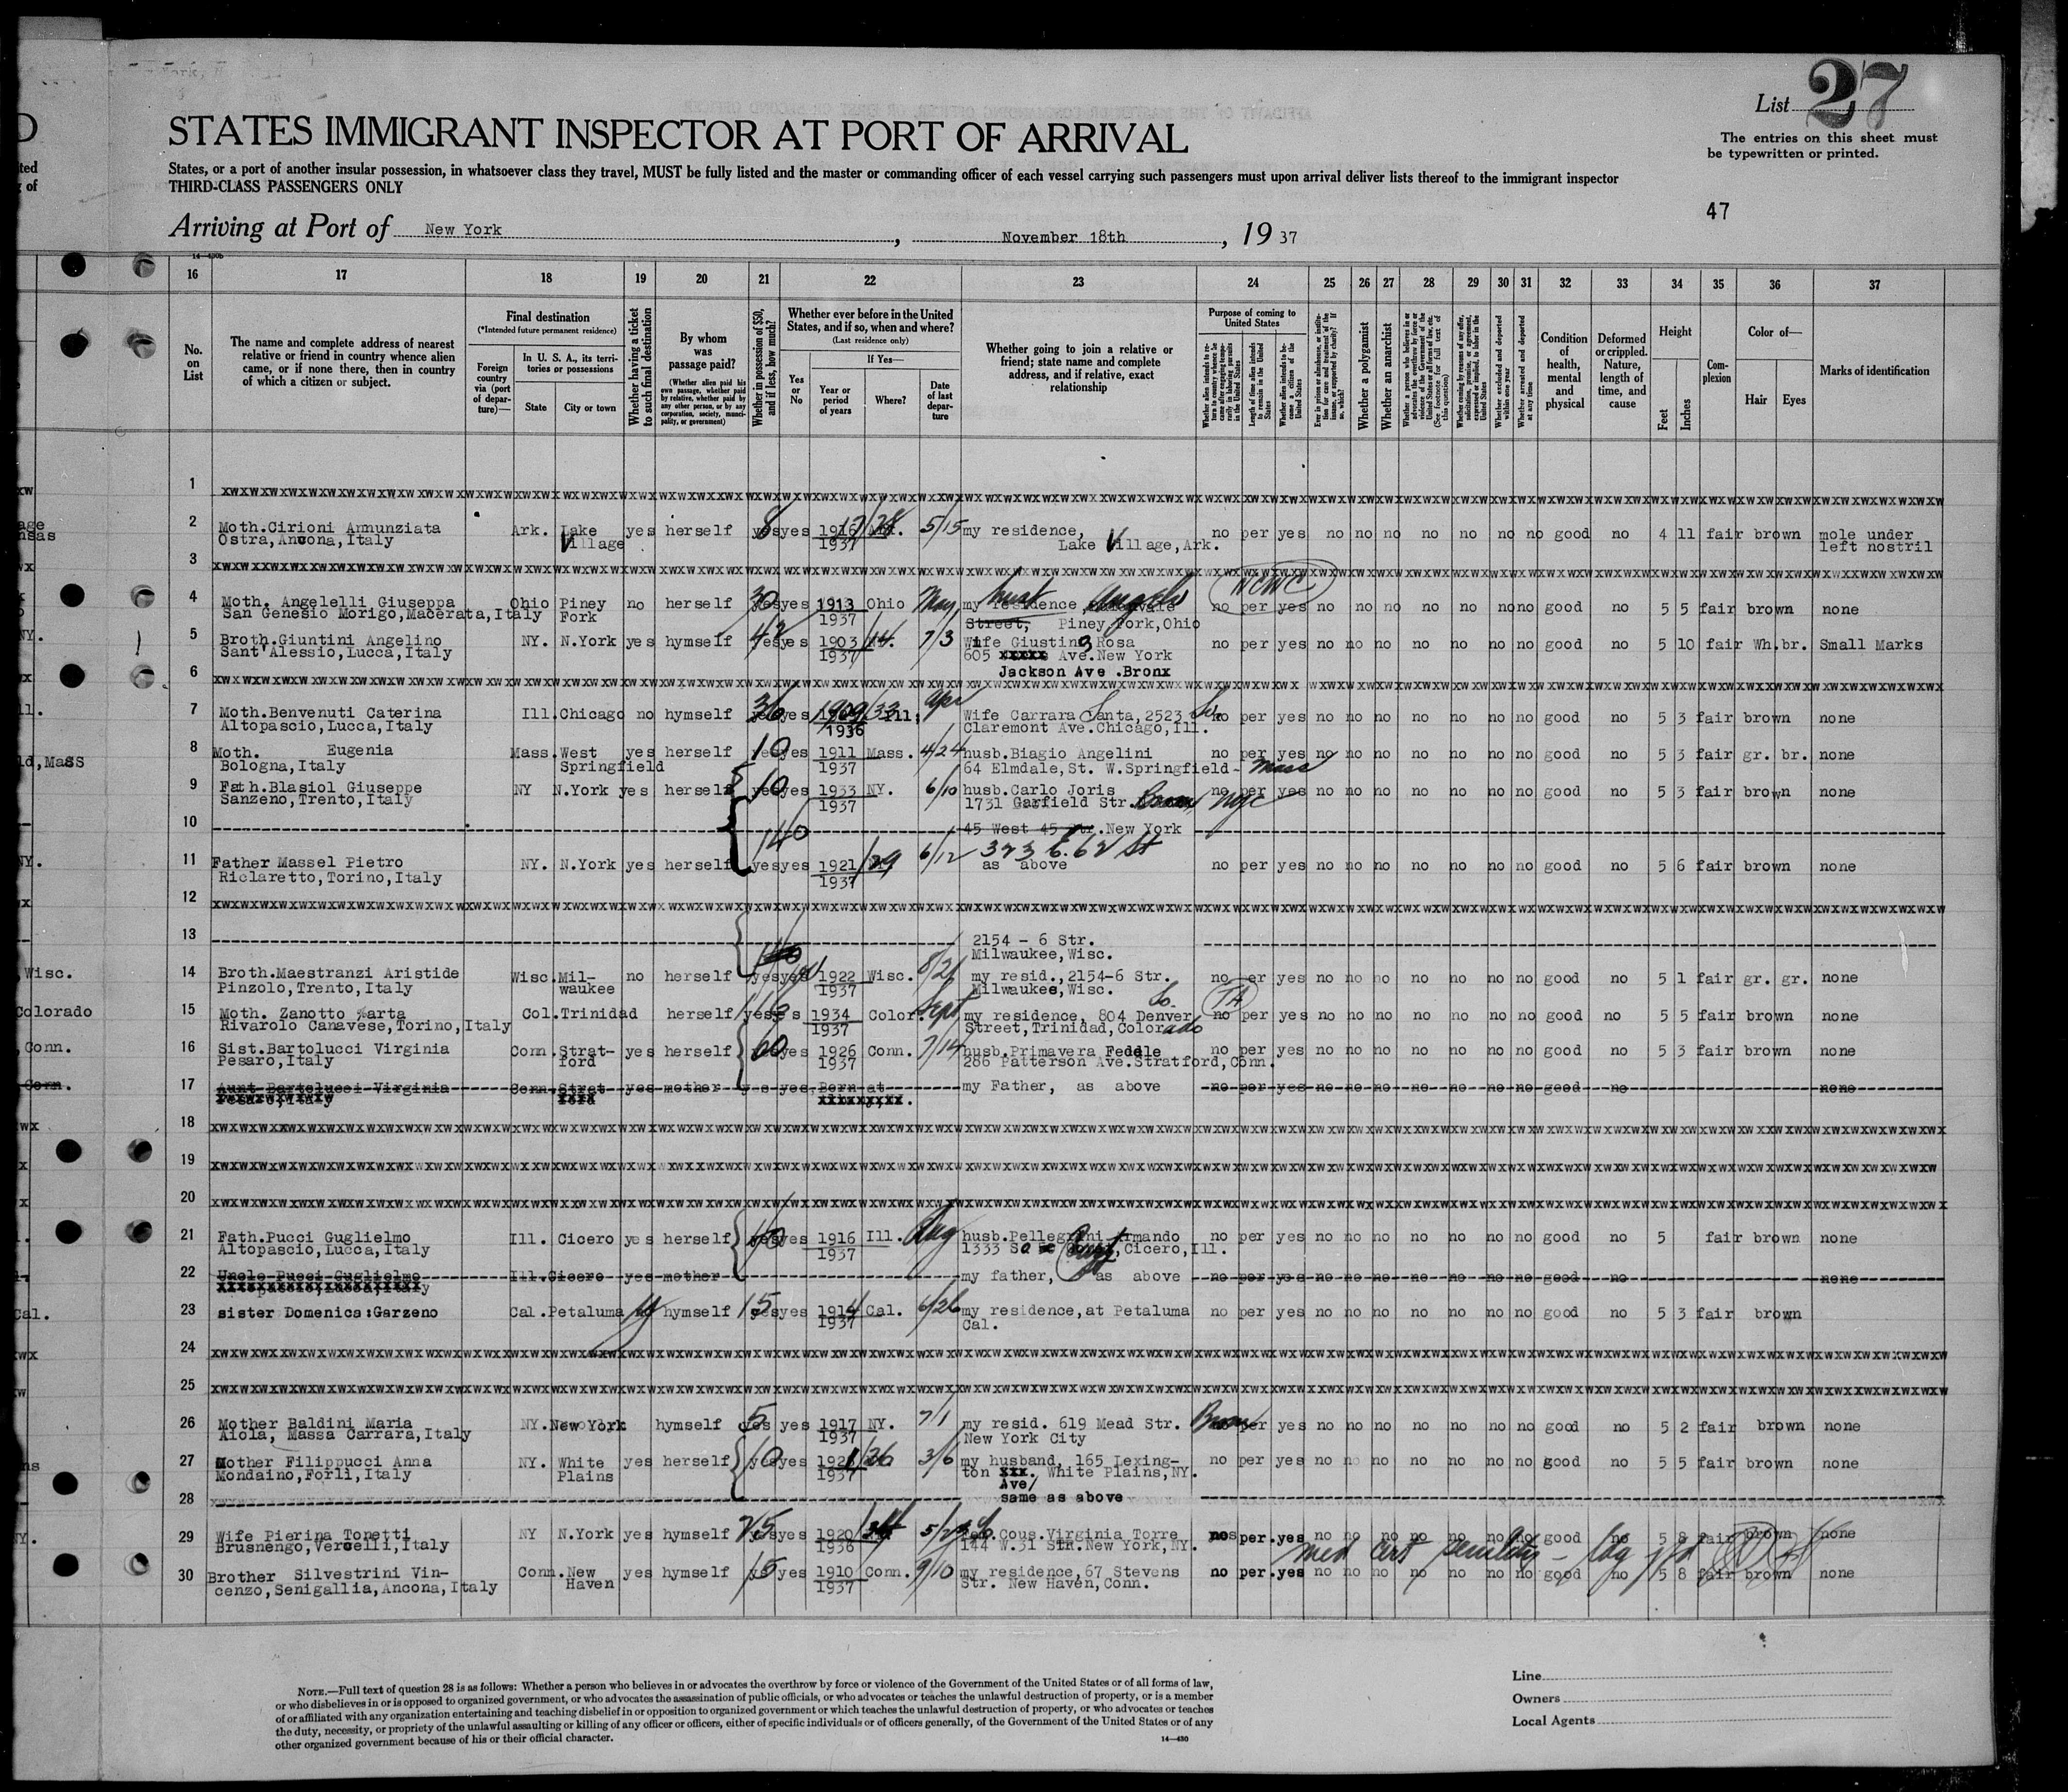 List 27
The entries on this sheet must
be typewritten or printed.
STATES IMMIGRANT INSPECTOR AT PORT OF ARRIVAL
States, or a port of another insular possession, in whatsoever class they travel, MUST be fully listed and the master or commanding officer of each vessel carrying such passengers must upon arrival deliver lists thereof to the immigrant inspector
THIRD-CLASS PASSENGERS ONLY
47
Arriving at Port of New York, November 18th, 1937
16 17 18 19 20 21 22 23 24 25 26 27 28 29 30 31 32 33 34 35 36 37
No. on List
The name and complete address of nearest relative or friend in country whence alien came, or if none there, then in country of which a citizen or subject.
Final destination
(*Intended future permanent residence)
Foreign country via (port of departure)—
In U. S. A., its territories or possessions
State
City or town
Whether having a ticket to such final destination
By whom was passage paid?
(Whether alien paid his own passage, whether paid by relative, whether paid by any other person, or by any corporation, society, municipality, or government)
Whether in possession of $50, and if less, how much?
Whether ever before in the United States, and if so, when and where?
(Last residence only)
Yes or No
If Yes—
Year or period of years
Where?
Date of last departure
Whether going to join a relative or friend; state name and complete address, and if relative, exact relationship
Purpose of coming to United States
Length of time alien intends to remain in the United States
Whether alien intends to become a citizen of the United States
Whether a polygamist
Whether an anarchist
Whether excluded and deported within one year
Whether arrested and deported at any time
Condition of health, mental and physical
Deformed or crippled. Nature, length of time, and cause
Height
Feet
Inches
Complexion
Color of—
Hair
Eyes
Marks of identification
1
2 Moth.Cirioni Annunziata Ark. Lake yes herself 8 yes 1916 5/15 my residence, no per yes no no no no no no no good no 4 11 fair brown mole under
Ostra, Ancona, Italy Village 1937 Lake Village, Ark. left nostril
3
4 Moth. Angelelli Giuseppa Ohio Piney no herself 30 yes 1913 Ohio May my residence, no per yes no no no no no no no good no 5 5 fair brown none
San Genesio Morigo, Macerata, Italy Fork 1937 Street, Piney Fork, Ohio
NCWC
5 Broth.Giuntini Angelino NY. N.York yes hymself 42 yes 1903 7/3 Wife Giustina Rosa no per yes no no no no no no no good no 5 10 fair Wh.br. Small Marks
Sant'Alessio, Lucca, Italy 1937 605 Ave. New York
6 Jackson Ave .Bronx
7 Moth.Benvenuti Caterina Ill. Chicago no hymself 36 yes 1909 33 Ill. Apr Wife Carrara Santa, 2523 So no per yes no no no no no no no good no 5 3 fair brown none
Altopascio, Lucca, Italy 1936 Claremont Ave. Chicago, Ill.
8 Moth. Eugenia Mass. West yes herself 10 yes 1911 Mass. 4/24 husb. Biagio Angelini no per yes no no no no no no no good no 5 3 fair gr. br. none
Bologna, Italy Springfield 1937 64 Elmdale, St. W.Springfield - Mass
9 Fath.Blasiol Giuseppe NY N.York yes herself 10 yes 1933 NY. 6/10 husb.Carlo Joris no per yes no no no no no no no good no 5 3 fair brown none
Sanzeno, Trento, Italy 1937 1731 Garfield Str. Bronx NYC
10 140 45 West 45 Str. New York
323 E. 62 St
11 Father Massel Pietro NY. N.York yes herself yes yes 1921 29 6/12 as above no per yes no no no no no no no good no 5 6 fair brown none
Riclaretto, Torino, Italy 1937
12
13 2154 - 6 Str.
Milwaukee, Wisc.
14 Broth.Maestranzi Aristide Wisc. Mil- no herself yes yes 1922 Wisc. 8/21 my resid., 2154-6 Str. no per yes no no no no no no no good no 5 1 fair gr. gr. none
Pinzolo, Trento, Italy waukee 1937 Milwaukee, Wisc.
15 Moth. Zanotto Marta Col. Trinidad herself yes 1934 Color. Sept my residence, 804 Denver no per yes no no no no no no no good no 5 5 fair brown none
Rivarolo Canavese, Torino, Italy 1937 Street, Trinidad, Colorado
16 Sist.Bartolucci Virginia Conn. Strat- yes herself 60 yes 1926 Conn. 7/14 husb. Primavera Fedele no per yes no no no no no no no good no 5 3 fair brown none
Pesaro, Italy ford 1937 286 Patterson Ave. Stratford, Conn.
17 Aunt Bartolucci Virginia Conn. Strat yes mother yes yes Born at my Father, as above no per yes no no no no no no no good no none
Pesaro, Italy ford
18
19
20
21 Fath.Pucci Guglielmo Ill. Cicero yes herself yes 1916 Ill. Aug husb. Pellegrini Armando no per yes no no no no no no no good no 5 fair brown none
Altopascio, Lucca, Italy 1937 1333 So Cicero, Ill.
22 Uncle Pucci Guglielmo Ill. Cicero yes mother my father, as above no per yes no no no no no no no good no none
23 sister Domenica Garzeno Cal. Petaluma hymself 15 yes 1914 Cal. 6/26 my residence, at Petaluma no per yes no no no no no no no good no 5 3 fair brown
1937 Cal.
24
25
26 Mother Baldini Maria NY. New York hymself 5 yes 1917 NY. 7/1 my resid. 619 Mead Str. Bronx per yes no no no no no no no good no 5 2 fair brown none
Aiola, Massa Carrara, Italy 1937 New York City
27 Mother Filippucci Anna NY. White yes herself 10 yes 1921 26 3/6 my husband, 165 Lexing- no per yes no no no no no no no good no 5 5 fair brown none
Mondaino, Forlì, Italy Plains 1937 ton xxx. White Plains, NY.
Ave/
28 same as above
29 Wife Pierina Tonetti NY N.York yes hymself 25 yes 1920 Cous. Virginia Torre no per yes no no no no no no no good no 5 8 fair brown none
Brusnengo, Vercelli, Italy 1936 144 W.31 Str. New York, NY.
med cert senility
30 Brother Silvestrini Vin- Conn. New yes hymself 15 yes 1910 Conn. 9/10 my residence, 67 Stevens no per yes no no no no no no no good no 5 8 fair brown none
cenzo, Senigallia, Ancona, Italy Haven 1937 Str. New Haven, Conn.
NOTE.—Full text of question 28 is as follows: Whether a person who believes in or advocates the overthrow by force or violence of the Government of the United States or of all forms of law,
or who disbelieves in or is opposed to organized government, or who advocates the assassination of public officials, or who advocates or teaches the unlawful destruction of property, or is a member
of or affiliated with any organization entertaining and teaching disbelief in or opposition to organized government or which teaches the unlawful destruction of property, or who advocates or teaches
the duty, necessity, or propriety of the unlawful assaulting or killing of any officer or officers, either of specific individuals or of officers generally, of the Government of the United States or of any
other organized government because of his or their official character.
14—430
Line
Owners
Local Agents